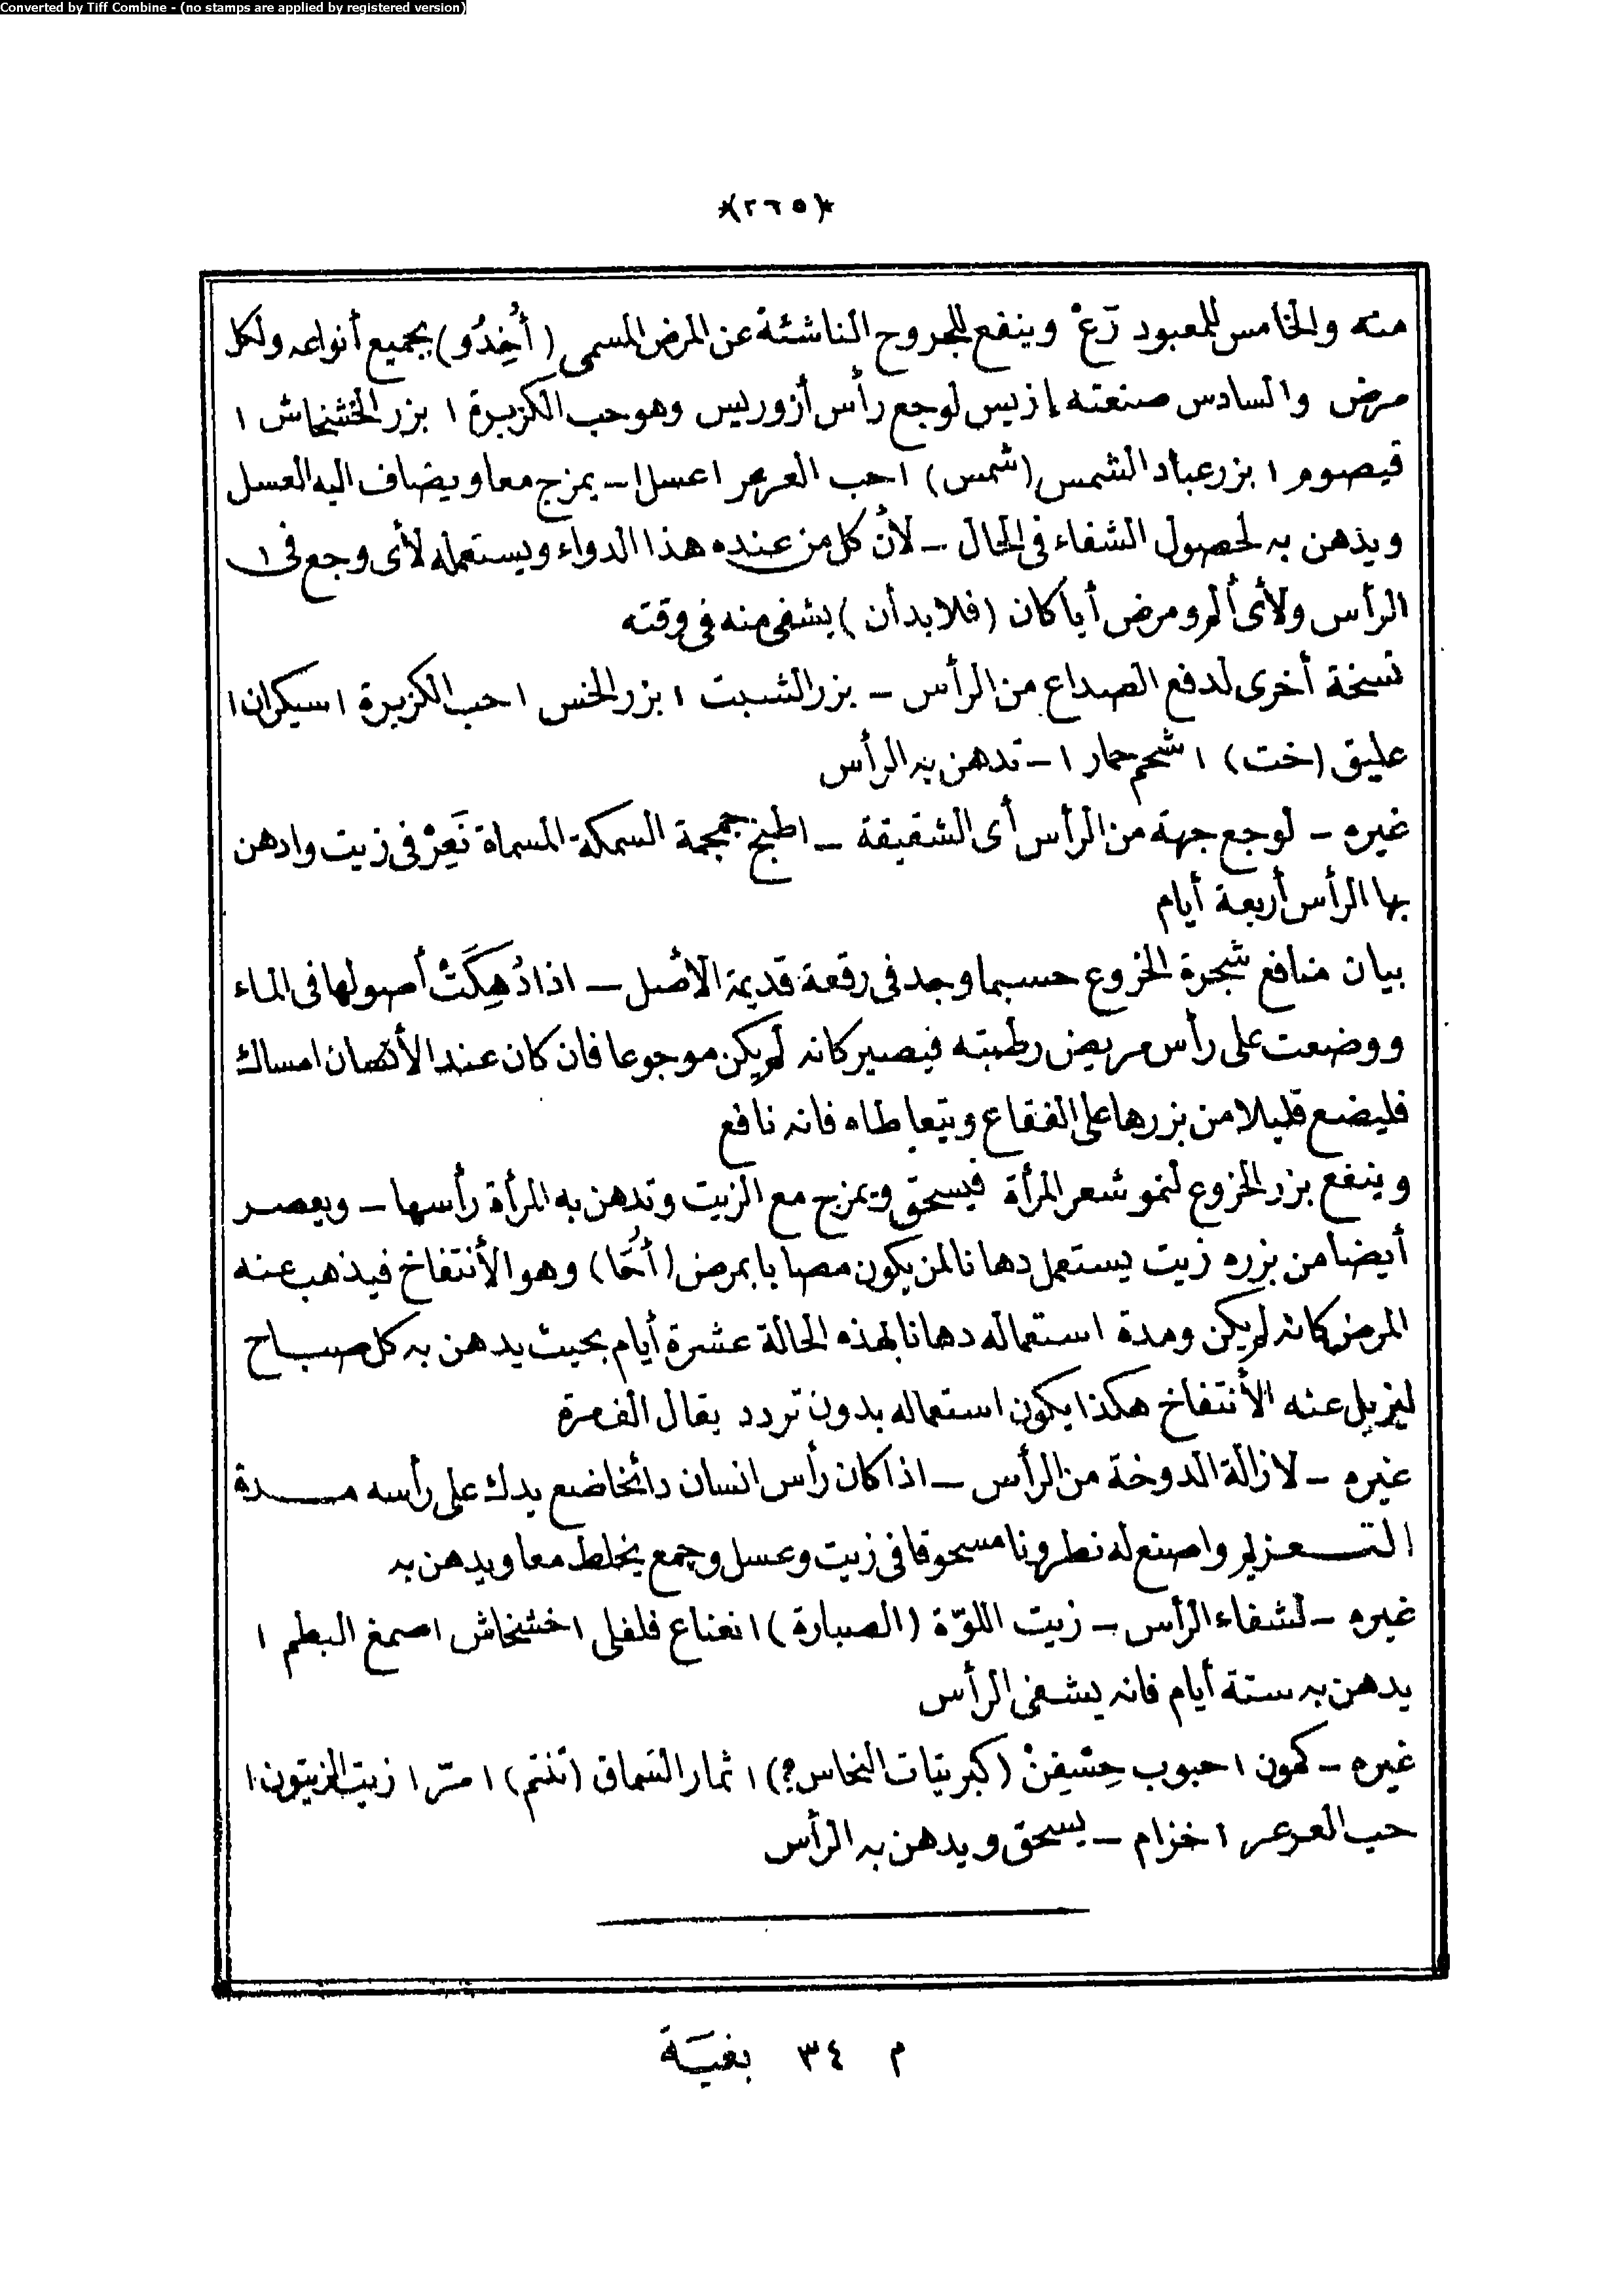 Converted by Tiff Combine - (no stamps are applied by registered version)
*(٢٦٥)*
منه والخامس للمعبود رَعْ وينفع للجروح الناشئة عن المرض المسمى (أُخِدُو) بجميع أنواعه ولكل
مرض والسادس صنعته إزيس لوجع رأس أزوريس وهو حب الكزبرة ١ بزر الخشخاش ١
قيصوم ١ بزر عباد الشمس (شمس) ١ حب العرعر ١ عسل ١ - يمزج معا ويضاف اليه العسل
ويدهن به لحصول الشفاء فى الحال - لأن كل من عنده هذا الدواء ويستعمله لأى وجع فى
الرأس ولأى ألم ومرض أيا كان (فلا بد أن) يشفى منه فى وقته
نسخة أخرى لدفع الصداع من الرأس - بزر الشبت ١ بزر الخس ١ حب الكزبرة ١ سيكران ١
عليق (خت) ١ شحم حمار ١ - تدهن به الرأس
غيره - لوجع جهة من الرأس أى الشقيقة - اطبخ جمجمة السمكة المسماة نَعِرْ فى زيت وادهن
بها الرأس أربعة أيام
بيان منافع شجرة الخروع حسبما وجد فى رقعة قديمة الأصل - اذا دُهِكَتْ أصولها فى الماء
ووضعت على رأس مريض رطبته فيصير كانه لم يكن موجوعا فان كان عند الأنسان امساك
فليضع قليلا من بزرها على الفقاع ويتعاطاه فانه نافع
وينفع بزر الخروع لنمو شعر المرأة فيسحق ويمزج مع الزيت وتدهن به المرأة رأسها - ويعصر
أيضا من بزره زيت يستعمل دهانا لمن يكون مصابا بمرض (أُحَا) وهو الأنتفاخ فيذهب عنه
المرض كانه لم يكن ومدة استعماله دهانا لهذه الحالة عشرة أيام بحيث يدهن به كل صباح
ليزيل عنه الأنتفاخ هكذا يكون استعماله بدون تردد يقال الف مرة
غيره - لازالة الدوخة من الرأس - اذا كان رأس انسان دائخا ضع يدك على رأسه مدة
التعزيم واصنع له نطرونا مسحوقا فى زيت وعسل وجمع يخلط معا ويدهن به
غيره - لشفاء الرأس - زيت اللوّة (الصبارة) ١ نعناع فلفلى ١ خشخاش ١ صمغ البطم ١
يدهن به ستة أيام فانه يشفى الرأس
غيره - كمون ١ حبوب حِسْفِنْ (كبريتات النحاس؟) ١ ثمار السماق (تنتم) ١ مرّ ١ زيت الزيتون ١
حب العرعر ١ خزام - يسحق ويدهن به الرأس
م ٣٤ بغية